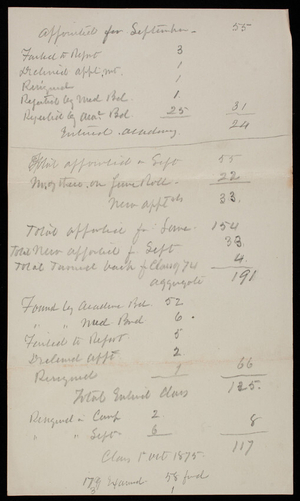 Appointed for September - 55
Failed to Report 3
Declined appt, nt. 1
Resigned 1
Rejected by Med Bd. 1
Rejected by Acad Bd. 25 31
Entered Academy 24
Total appointed in Sept 55
Most of these on June Roll - 22
New appt'ds 33.
Total appointed for June - 154
Total New appointed for Sept 33
Total Turned back of Class of 74 4
aggregate 191
Found by Academic Bd. 52
" " Med Board 6.
Failed to Report. 5
Declined Appt 2
Resigned 1 66
Total Entered Class 125.
Resigned in Camp 2
" " Sept. 6 8
Class 1 Oct 1875 117
179 Examd 58 fnd